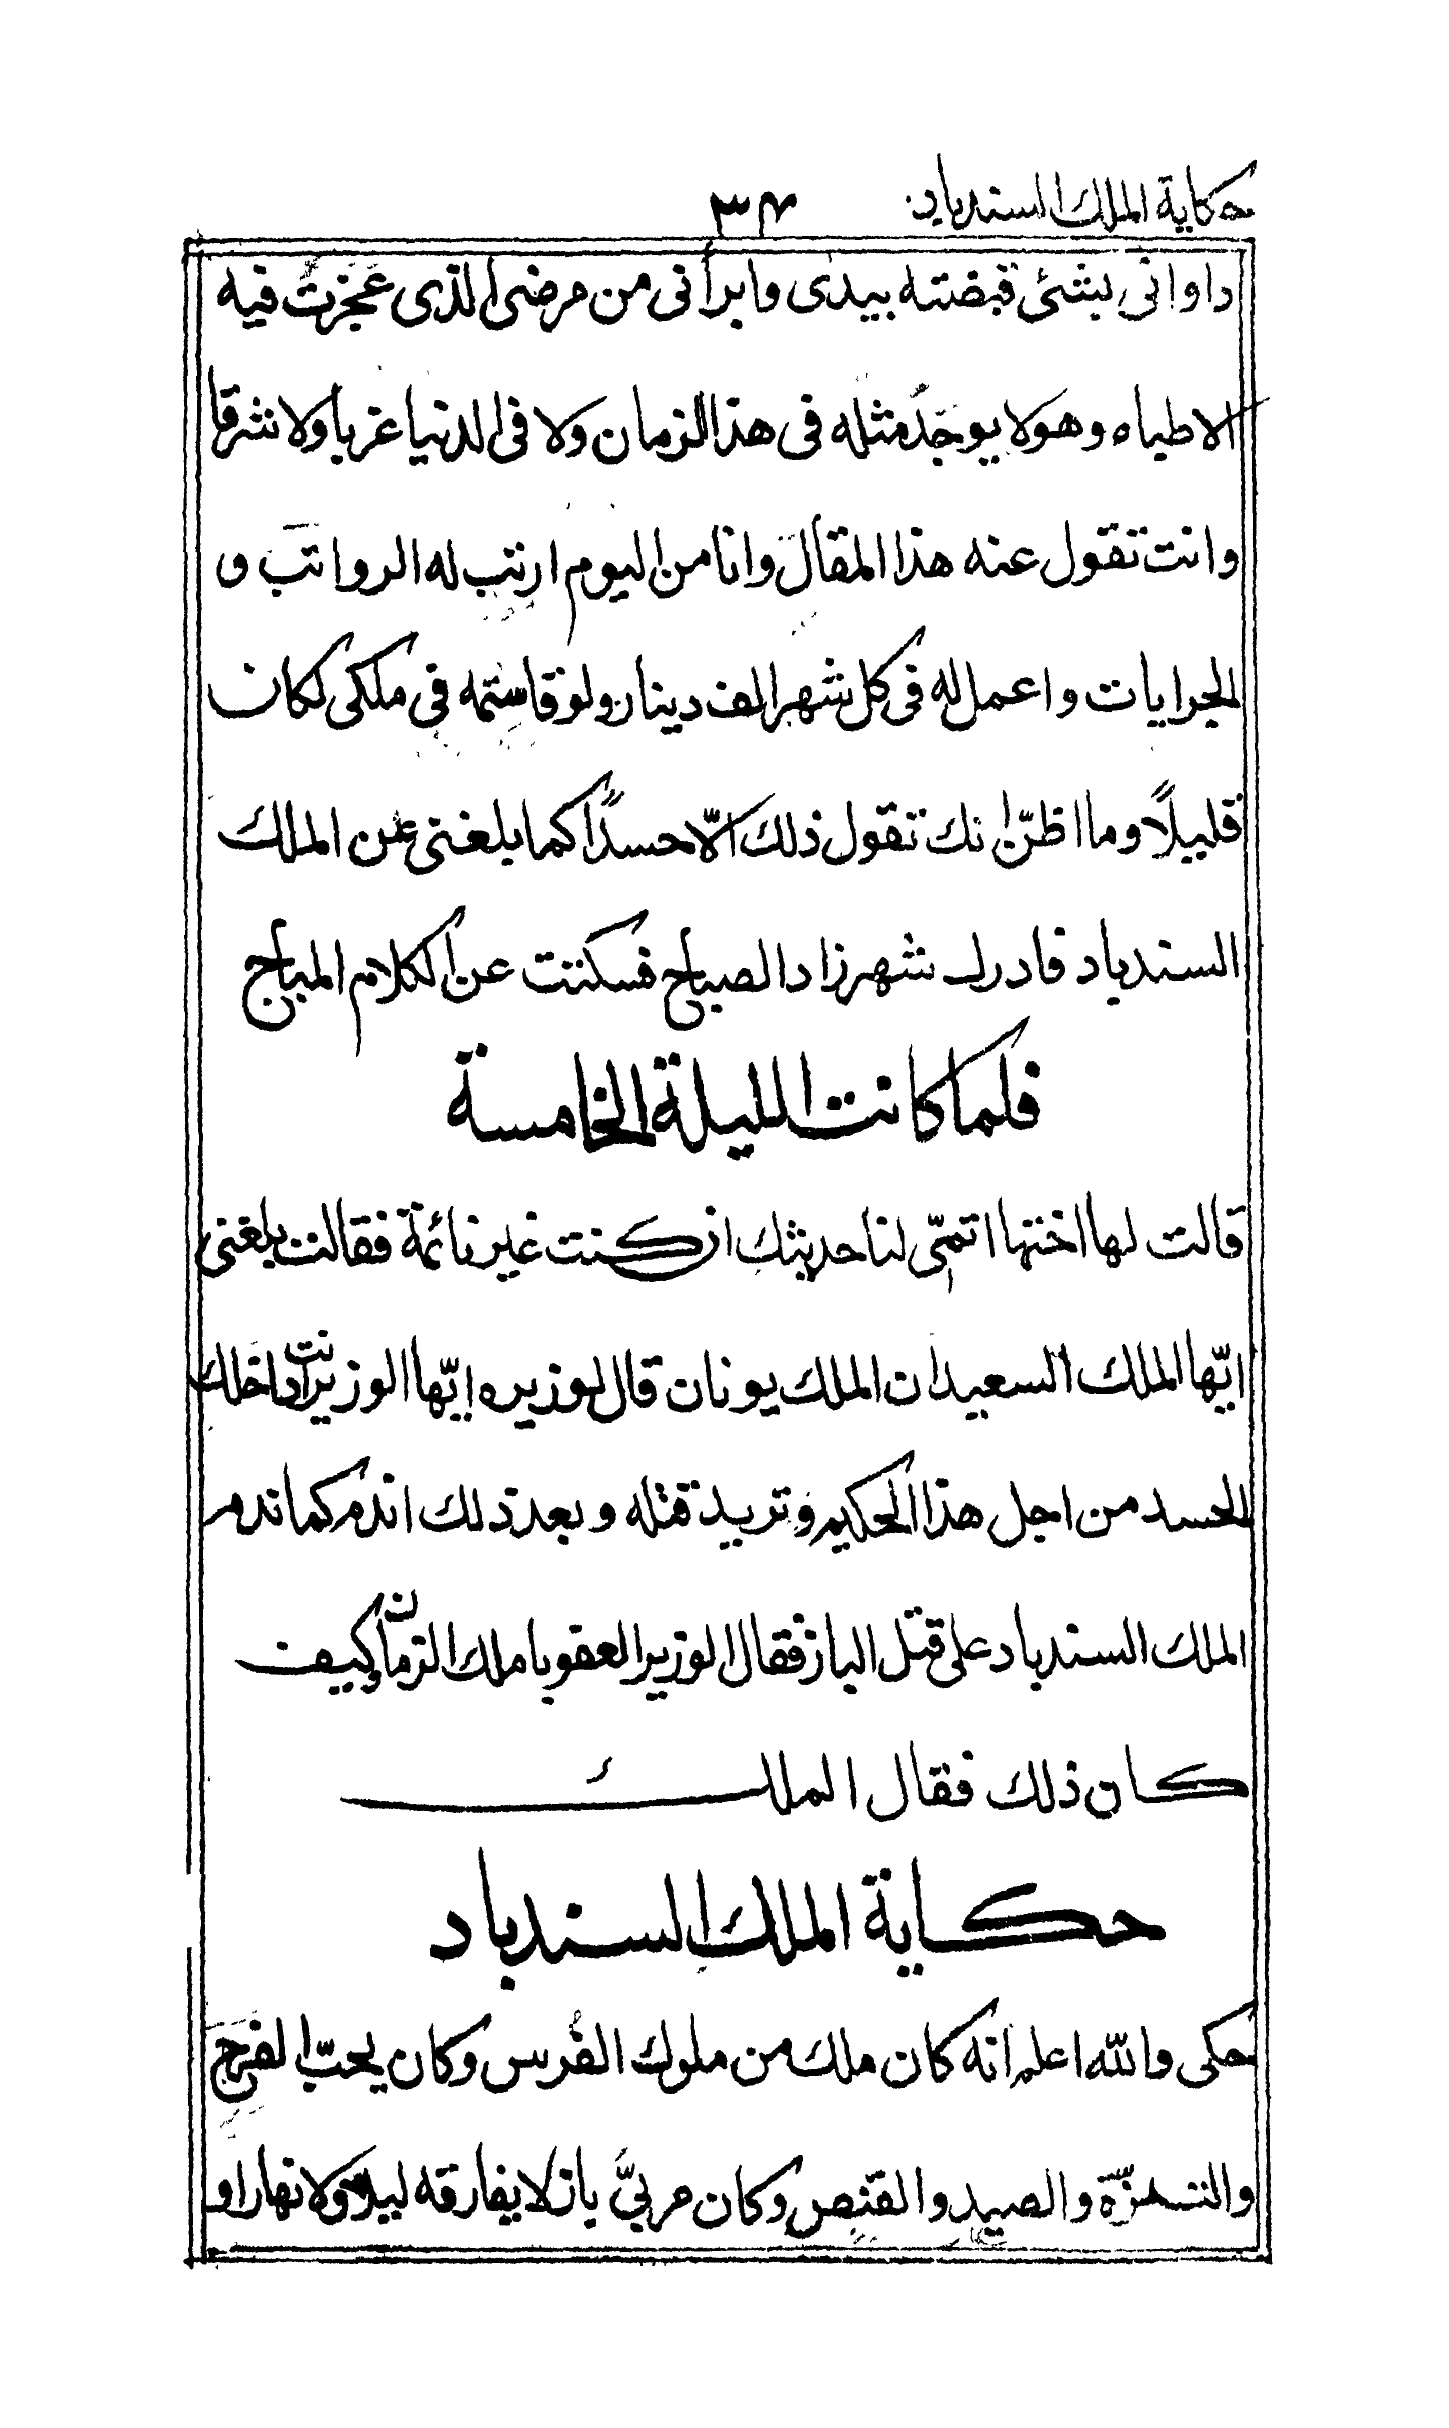 حكاية الملك السندباد ٣٤
داوانى بشئ قبضته بيدى وابرأنى من مرضى الذى عجزت فيه
الاطباء وهو لا يوجد مثله فى هذا الزمان ولا فى الدنيا غربا ولا شرقا
وانت تقول عنه هذا المقال وانا من اليوم ارتب له الرواتب و
الجرايات واعمل له فى كل شهر الف دينار ولو قاسمته فى ملكى لكان
قليلاً وما اظنّ انك تقول ذلك الّا حسداً كما بلغنى عن الملك
السندباد فادرك شهرزاد الصباح فسكتت عن الكلام المباح
فلما كانت الليلة الخامسة
قالت لها اختها اتمّى لنا حديثك ان كنت غير نائمة فقالت بلغنى
ايّها الملك السعيد ان الملك يونان قال لوزيره ايّها الوزير انت داخلك
الحسد من اجل هذا الحكيم وتريد قتله وبعد ذلك اندم كما ندم
الملك السندباد على قتل الباز فقال الوزير العفو يا ملك الزمان وكيف
كان ذلك فقال الملك
حكاية الملك السندباد
حكى والله اعلم انه كان ملك من ملوك الفُرس وكان يحبّ الفرج
والتنزّه والصيد والقنص وكان مربىَّ باز لا يفارقه ليلا ولا نهارا و